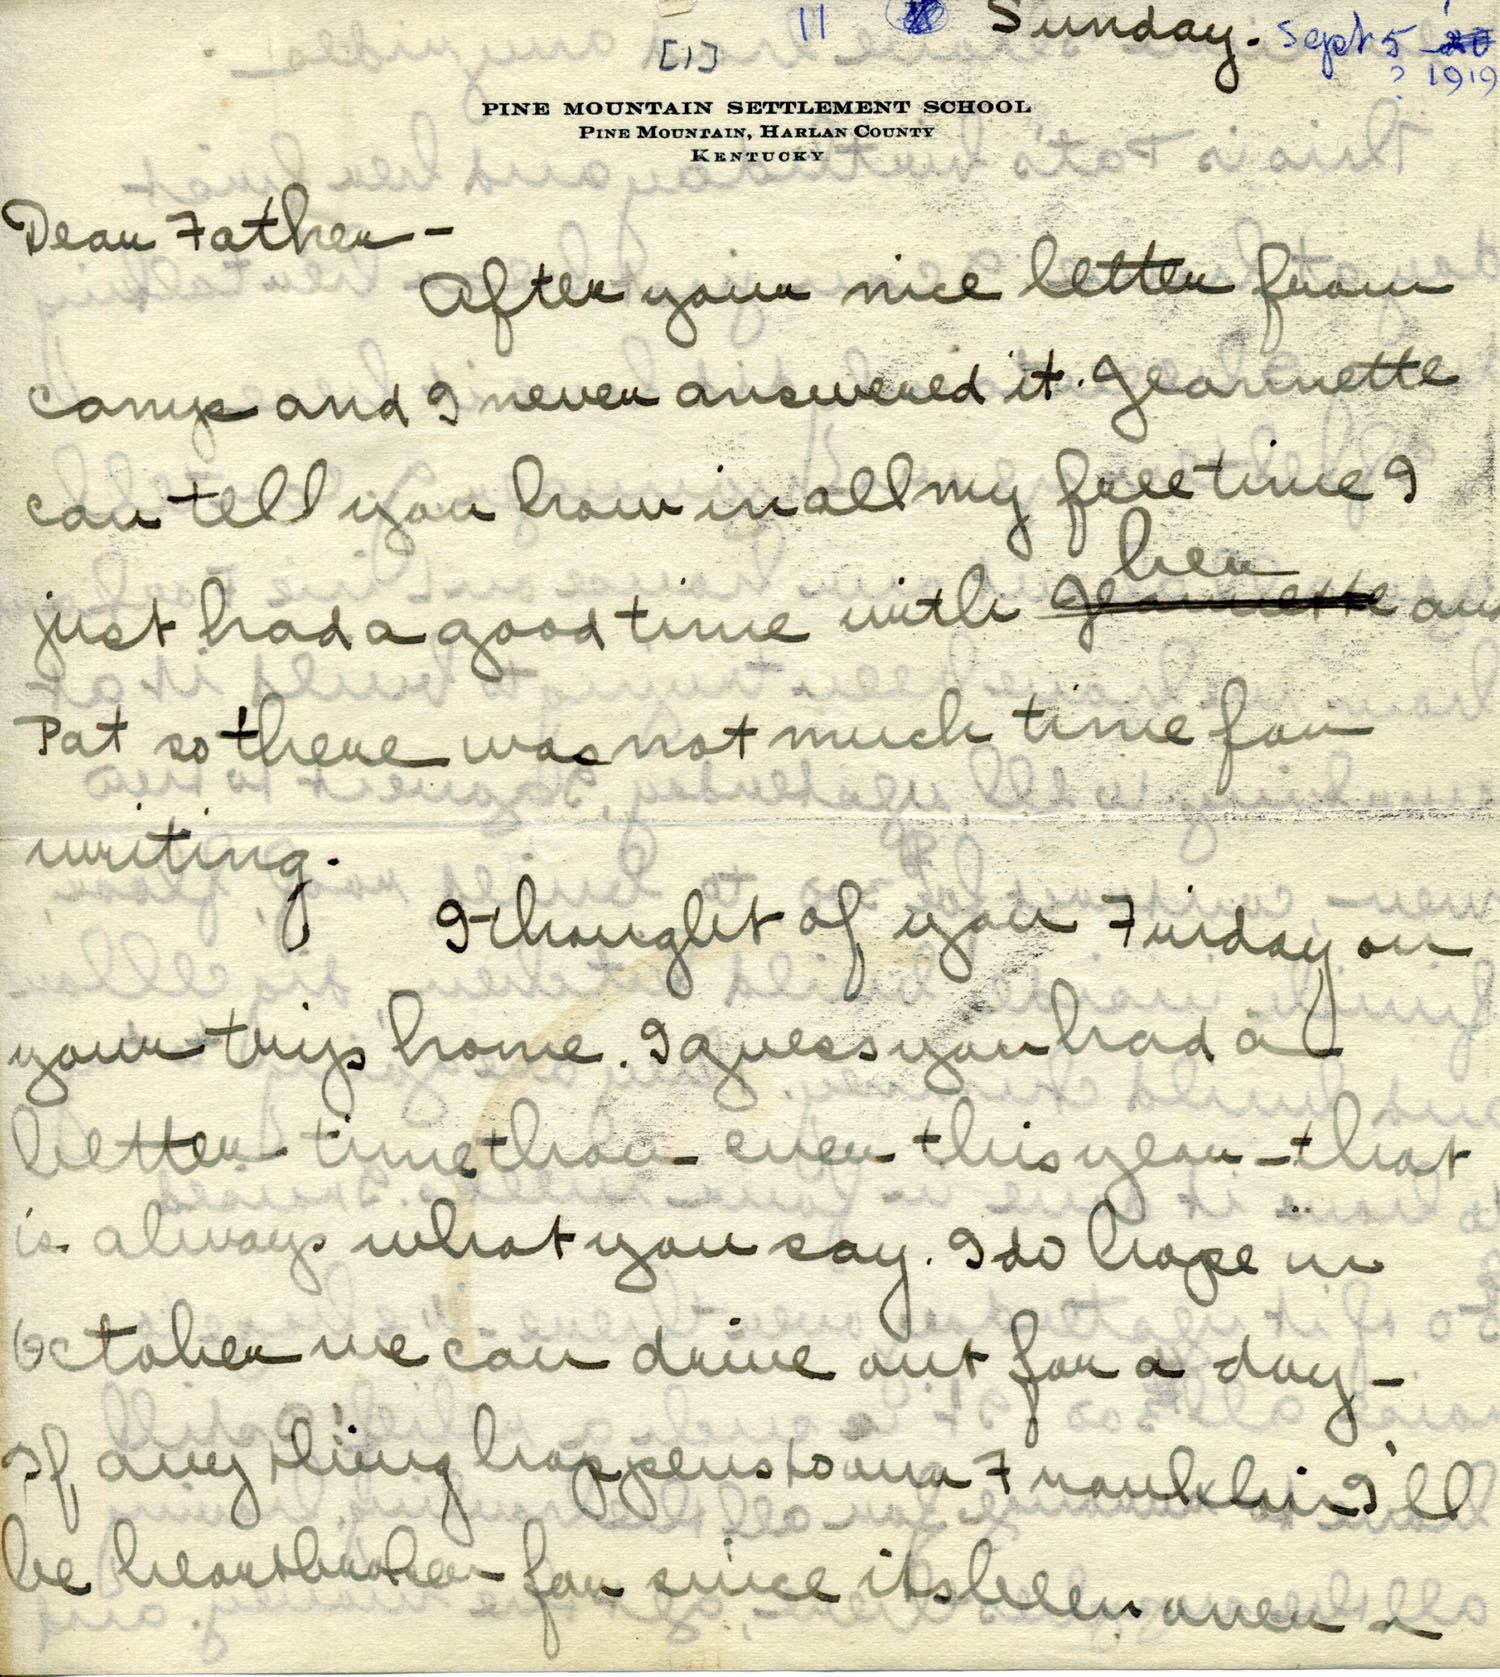 11 Sunday. Sept 5 20
[1] ? 1919
PINE MOUNTAIN SETTLEMENT SCHOOL
PINE MOUNTAIN, HARLAN COUNTY
KENTUCKY
Dear Father -
After your nice letter from
camp and I never answered it. Jeannette
can tell you how in all my free time I
her
just had a good time with Jeannette and
Pat so there was not much time for
writing.
I thought of you Friday on
your trip home. I guess you had a
better time than ever this year - that
is always what you say. I do hope in
October we can drive out for a day -
If any thing happens to our Franklin I'll
be heartbroken for since its been over